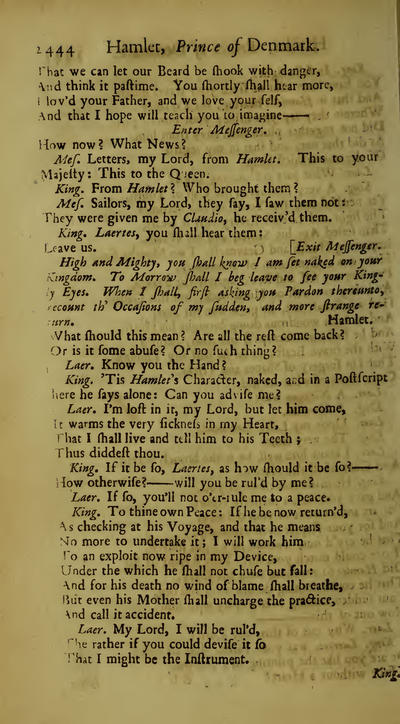 2444 Hamlet, Prince of Denmark.
That we can let our Beard be ſhook with danger,
And think it paſtime. You ſhortly ſhall hear more,
I lov'd your Father, and we love your ſelf,
And that I hope will teach you to imagine——
Enter Meſſenger.
How now? What News?
Meſ. Letters, my Lord, from Hamlet. This to your
Majeſty: This to the Queen.
King. From Hamlet? Who brought them?
Meſ. Sailors, my Lord, they ſay, I ſaw them not:
They were given me by Claudio, he receiv'd them.
King. Laertes, you ſhall hear them:
Leave us. [Exit Meſſenger.
High and Mighty, you ſhall know I am ſet naked on your
Kingdom. To Morrow ſhall I beg leave to ſee your King-
ly Eyes. When I ſhall, firſt asking you Pardon thereunto,
recount th' Occaſions of my ſudden, and more ſtrange re-
turn. Hamlet.
What ſhould this mean? Are all the reſt come back?
Or is it ſome abuſe? Or no ſuch thing?
Laer. Know you the Hand?
King. 'Tis Hamlet's Character, naked, and in a Poſtſcript
here he ſays alone: Can you adviſe me?
Laer. I'm loſt in it, my Lord, but let him come,
It warms the very ſickneſs in my Heart,
That I ſhall live and tell him to his Teeth;
Thus diddeſt thou.
King. If it be ſo, Laertes, as how ſhould it be ſo?——
How otherwiſe?——will you be rul'd by me?
Laer. If ſo, you'll not o'er-rule me to a peace.
King. To thine own Peace: If he be now return'd,
As checking at his Voyage, and that he means
No more to undertake it; I will work him
To an exploit now ripe in my Device,
Under the which he ſhall not chuſe but fall:
And for his death no wind of blame ſhall breathe,
But even his Mother ſhall uncharge the practice,
And call it accident.
Laer. My Lord, I will be rul'd,
The rather if you could deviſe it ſo
That I might be the Inſtrument.
King.